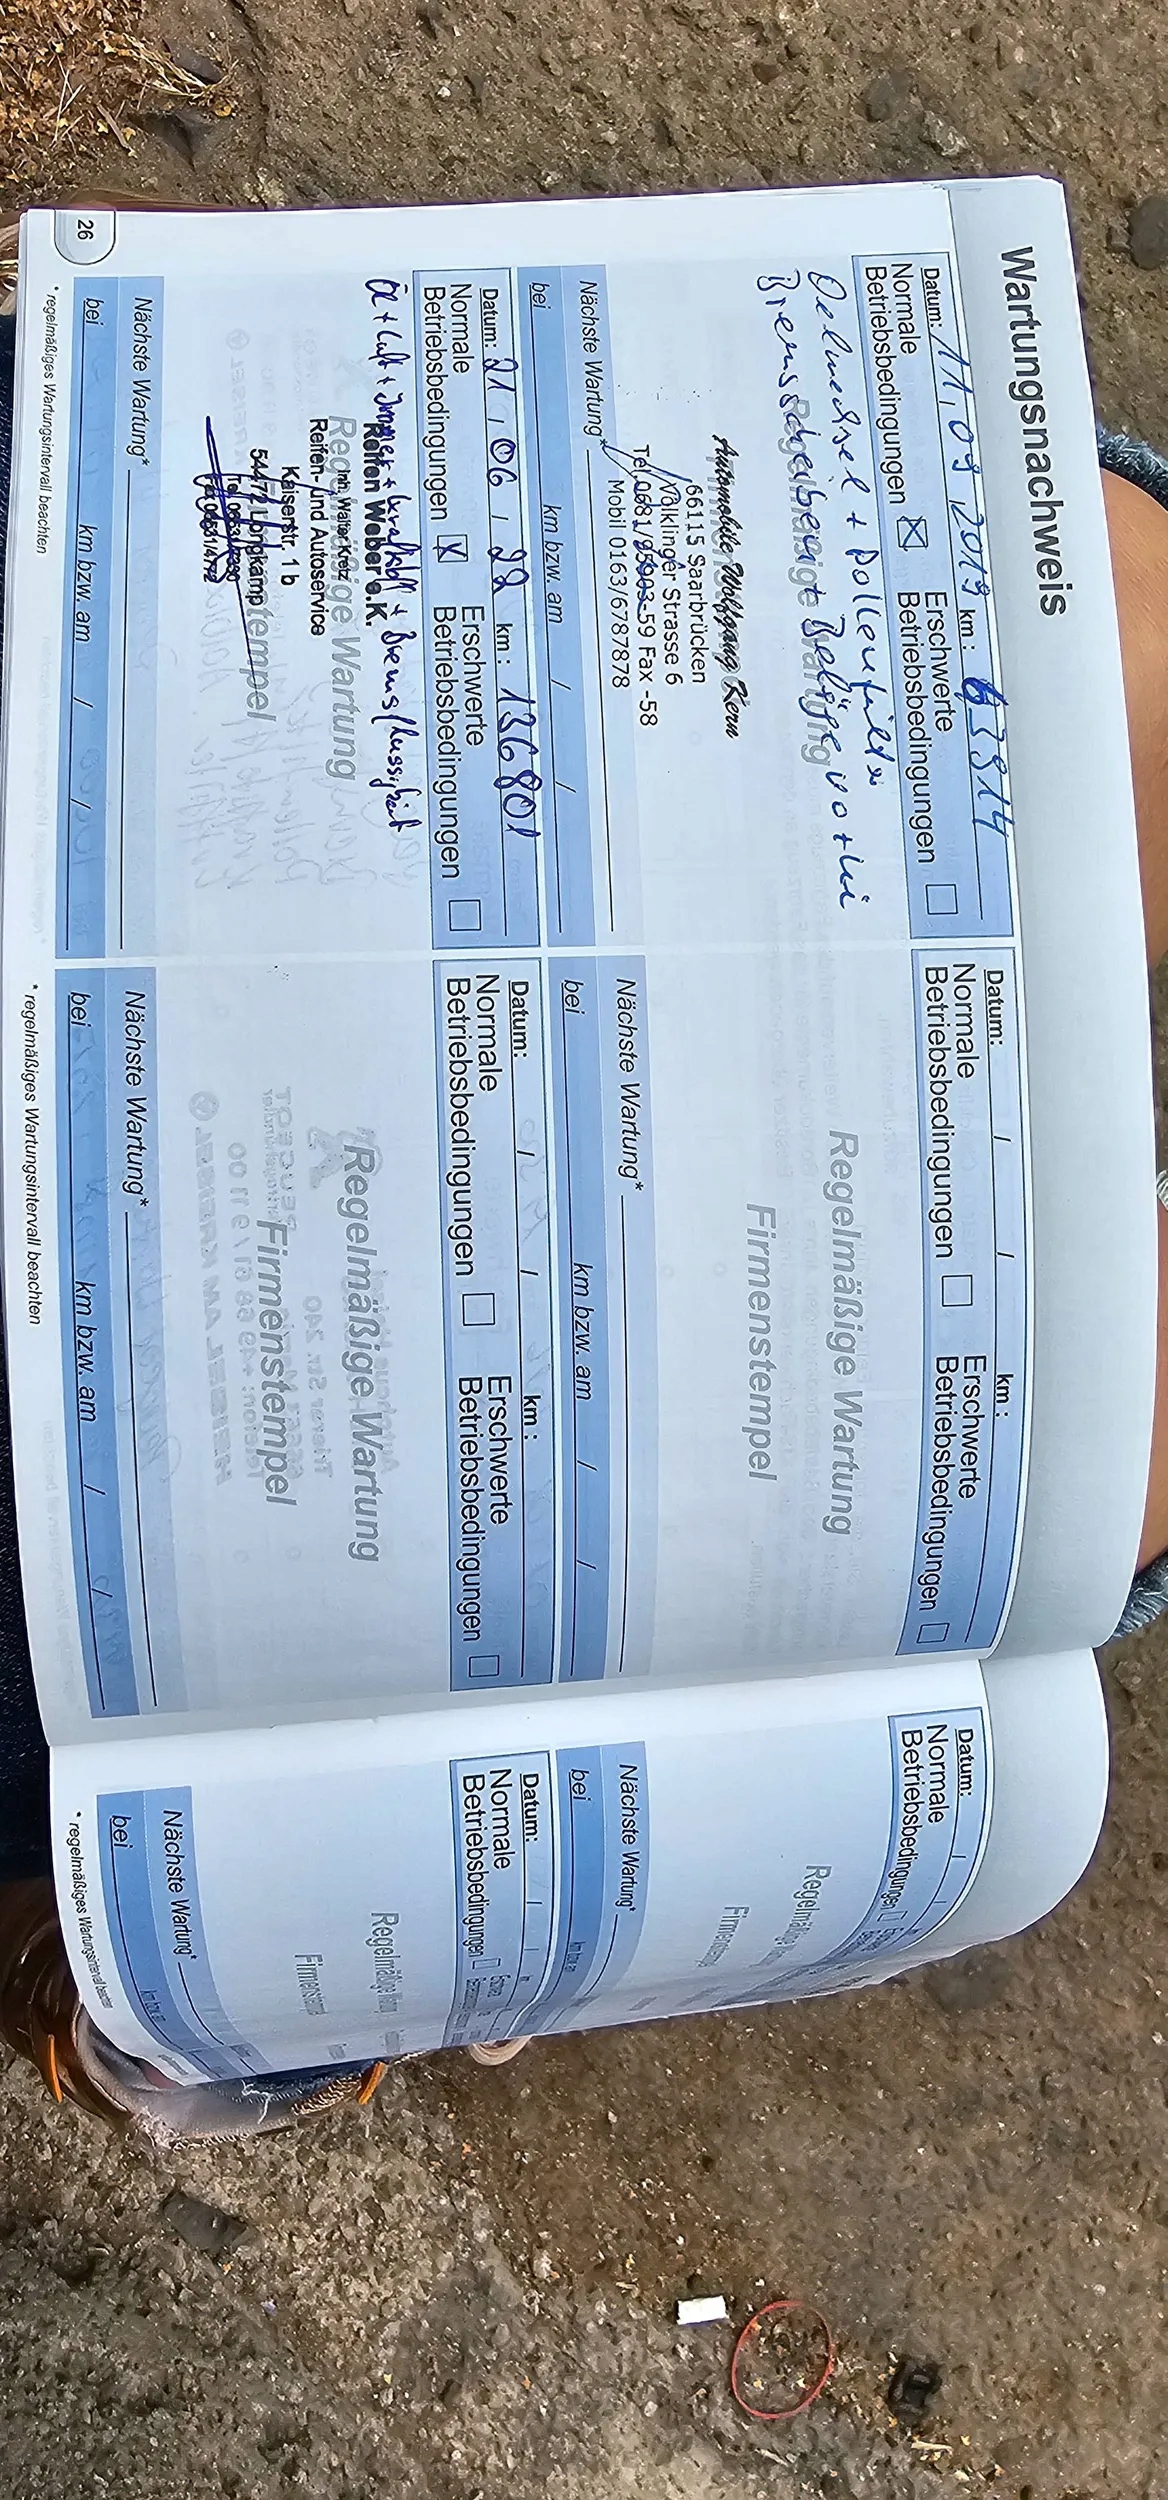 Wartungsnachweis
Datum: 11 / 09 / 2019 km: 63914
Normale Betriebsbedingungen ☒ Erschwerte Betriebsbedingungen ☐
Oelwechsel + Pollenfilter
Bremsscheiben Beläge vorne
Regelmäßige Wartung
Automobile Wolfgang Kern
66115 Saarbrücken
Völklinger Strasse 6
Tel. 0681/95903-59 Fax -58
Mobil 0163/6787878
Nächste Wartung*
bei km bzw. am / /
Datum: 21 / 06 / 22 km: 136801
Normale Betriebsbedingungen ☒ Erschwerte Betriebsbedingungen ☐
Öl + Luft + Innen + Kraftstoff + Bremsflüssigkeit
Regelmäßige Wartung
Reifen Weber e.K.
Inh. Walter Kretz
Reifen- und Autoservice
Kaiserstr. 1b
54472 Longkamp
Nächste Wartung*
bei km bzw. am / /
26
* regelmäßiges Wartungsintervall beachten
Datum: / / km:
Normale Betriebsbedingungen ☐ Erschwerte Betriebsbedingungen ☐
Regelmäßige Wartung
Firmenstempel
Nächste Wartung*
bei km bzw. am / /
Datum: / / km:
Normale Betriebsbedingungen ☐ Erschwerte Betriebsbedingungen ☐
Regelmäßige Wartung
Firmenstempel
Nächste Wartung*
bei km bzw. am / /
* regelmäßiges Wartungsintervall beachten
Datum: /
Normale Betriebsbedingungen ☐
Nächste Wartung*
bei
Datum: / /
Normale Betriebsbedingungen ☐
Nächste Wartung*
bei
* regelmäßiges Wartungsintervall beachten